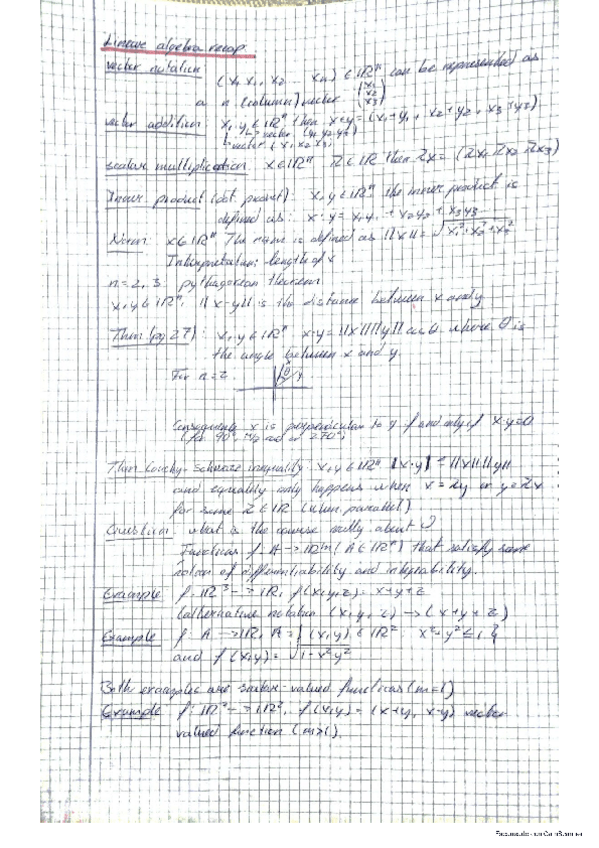 Linear algebra recap
vector notation
(x, x₁, x₂ ... xₙ) ∈ ℝⁿ can be represented as
a n (column) vector (x₁ x₂ x₃)
vector addition: x, y ∈ ℝⁿ then x+y = (x₁+y₁, x₂+y₂, x₃+y₂)
↳ vector (y₁ y₂ y₃)
↳ vector (x₁ x₂ x₃)
scalar multiplication x ∈ ℝⁿ λ ∈ ℝ then λx = (λx₁ λx₂ λx₃)
Inner product (dot product): x, y ∈ ℝⁿ the inner product is
defined as: x·y = x₁y₁ + x₂y₂ + x₃y₃
Norm: x ∈ ℝⁿ The norm is defined as ||x|| = √x₁²+x₂²+x₃²
Interpretation: length of x
n=2,3: pythagorean theorem
x, y ∈ ℝⁿ, ||x-y|| is the distance between x and y
Thm (pg 27): x, y ∈ ℝⁿ x·y = ||x|| ||y|| cos θ where θ is
the angle between x and y.
For n=2
θ y
Consequently x is perpendicular to y if and only if x·y=0
(for 90°, π/2 rad or 270°)
Thm Cauchy-Schwarz inequality: x, y ∈ ℝⁿ |x·y| ≤ ||x|| ||y||
and equality only happens when x = λy or y = λx
for some λ ∈ ℝ (when parallel)
Question: what is the course really about
Functions f: A -> ℝᵐ (A ∈ ℝⁿ) that satisfy some
notion of differentiability and integrability.
Example f: ℝ³ -> ℝ, f(x,y,z) = x+y+z
(alternative notation (x, y, z) -> (x+y+z)
Example f: A -> ℝ, A = {(x,y) ∈ ℝ²: x²+y² ≤ 1}
and f(x,y) = √1-x²y²
Both examples are scalar-valued functions (m=1)
Example f: ℝ² -> ℝ², f(x,y) = (x+y, x-y) vector
valued function (m>1).